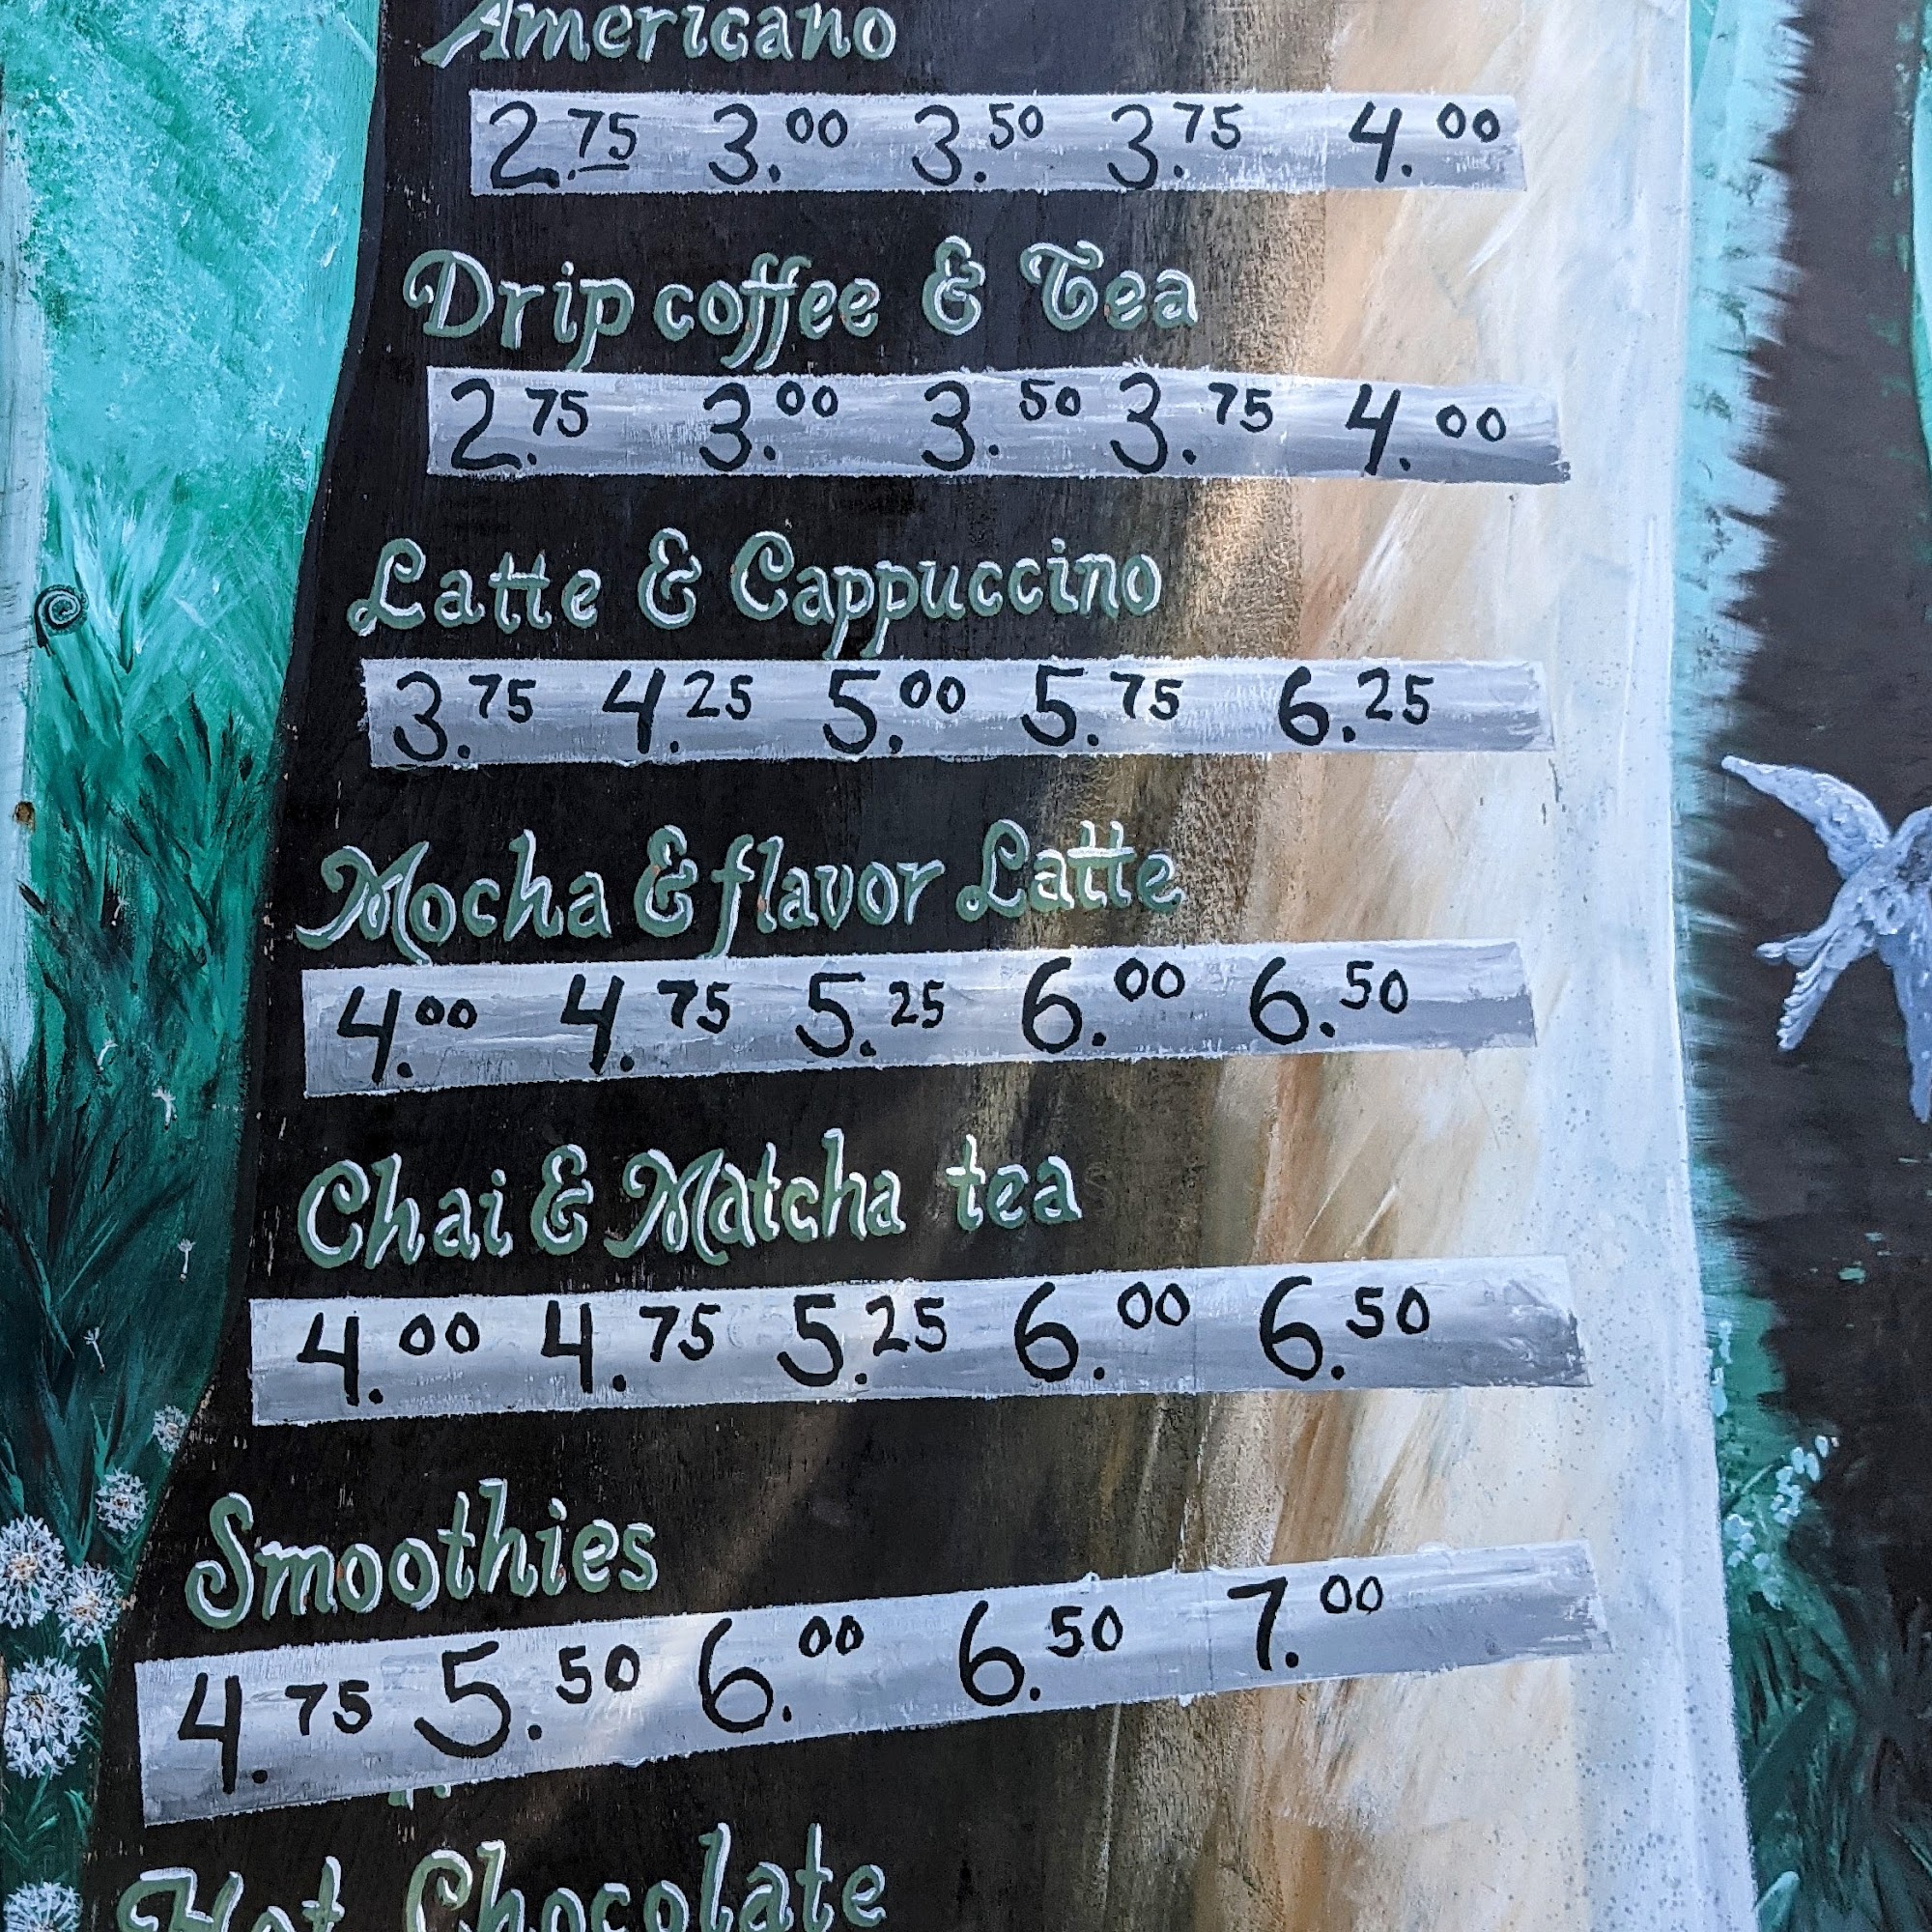 Americano
2.75 3.00 3.50 3.75 4.00
Drip coffee & Tea
2.75 3.00 3.50 3.75 4.00
Latte & Cappuccino
3.75 4.25 5.00 5.75 6.25
Mocha & flavor Latte
4.00 4.75 5.25 6.00 6.50
Chai & Matcha tea
4.00 4.75 5.25 6.00 6.50
Smoothies
4.75 5.50 6.00 6.50 7.00
Hot Chocolate